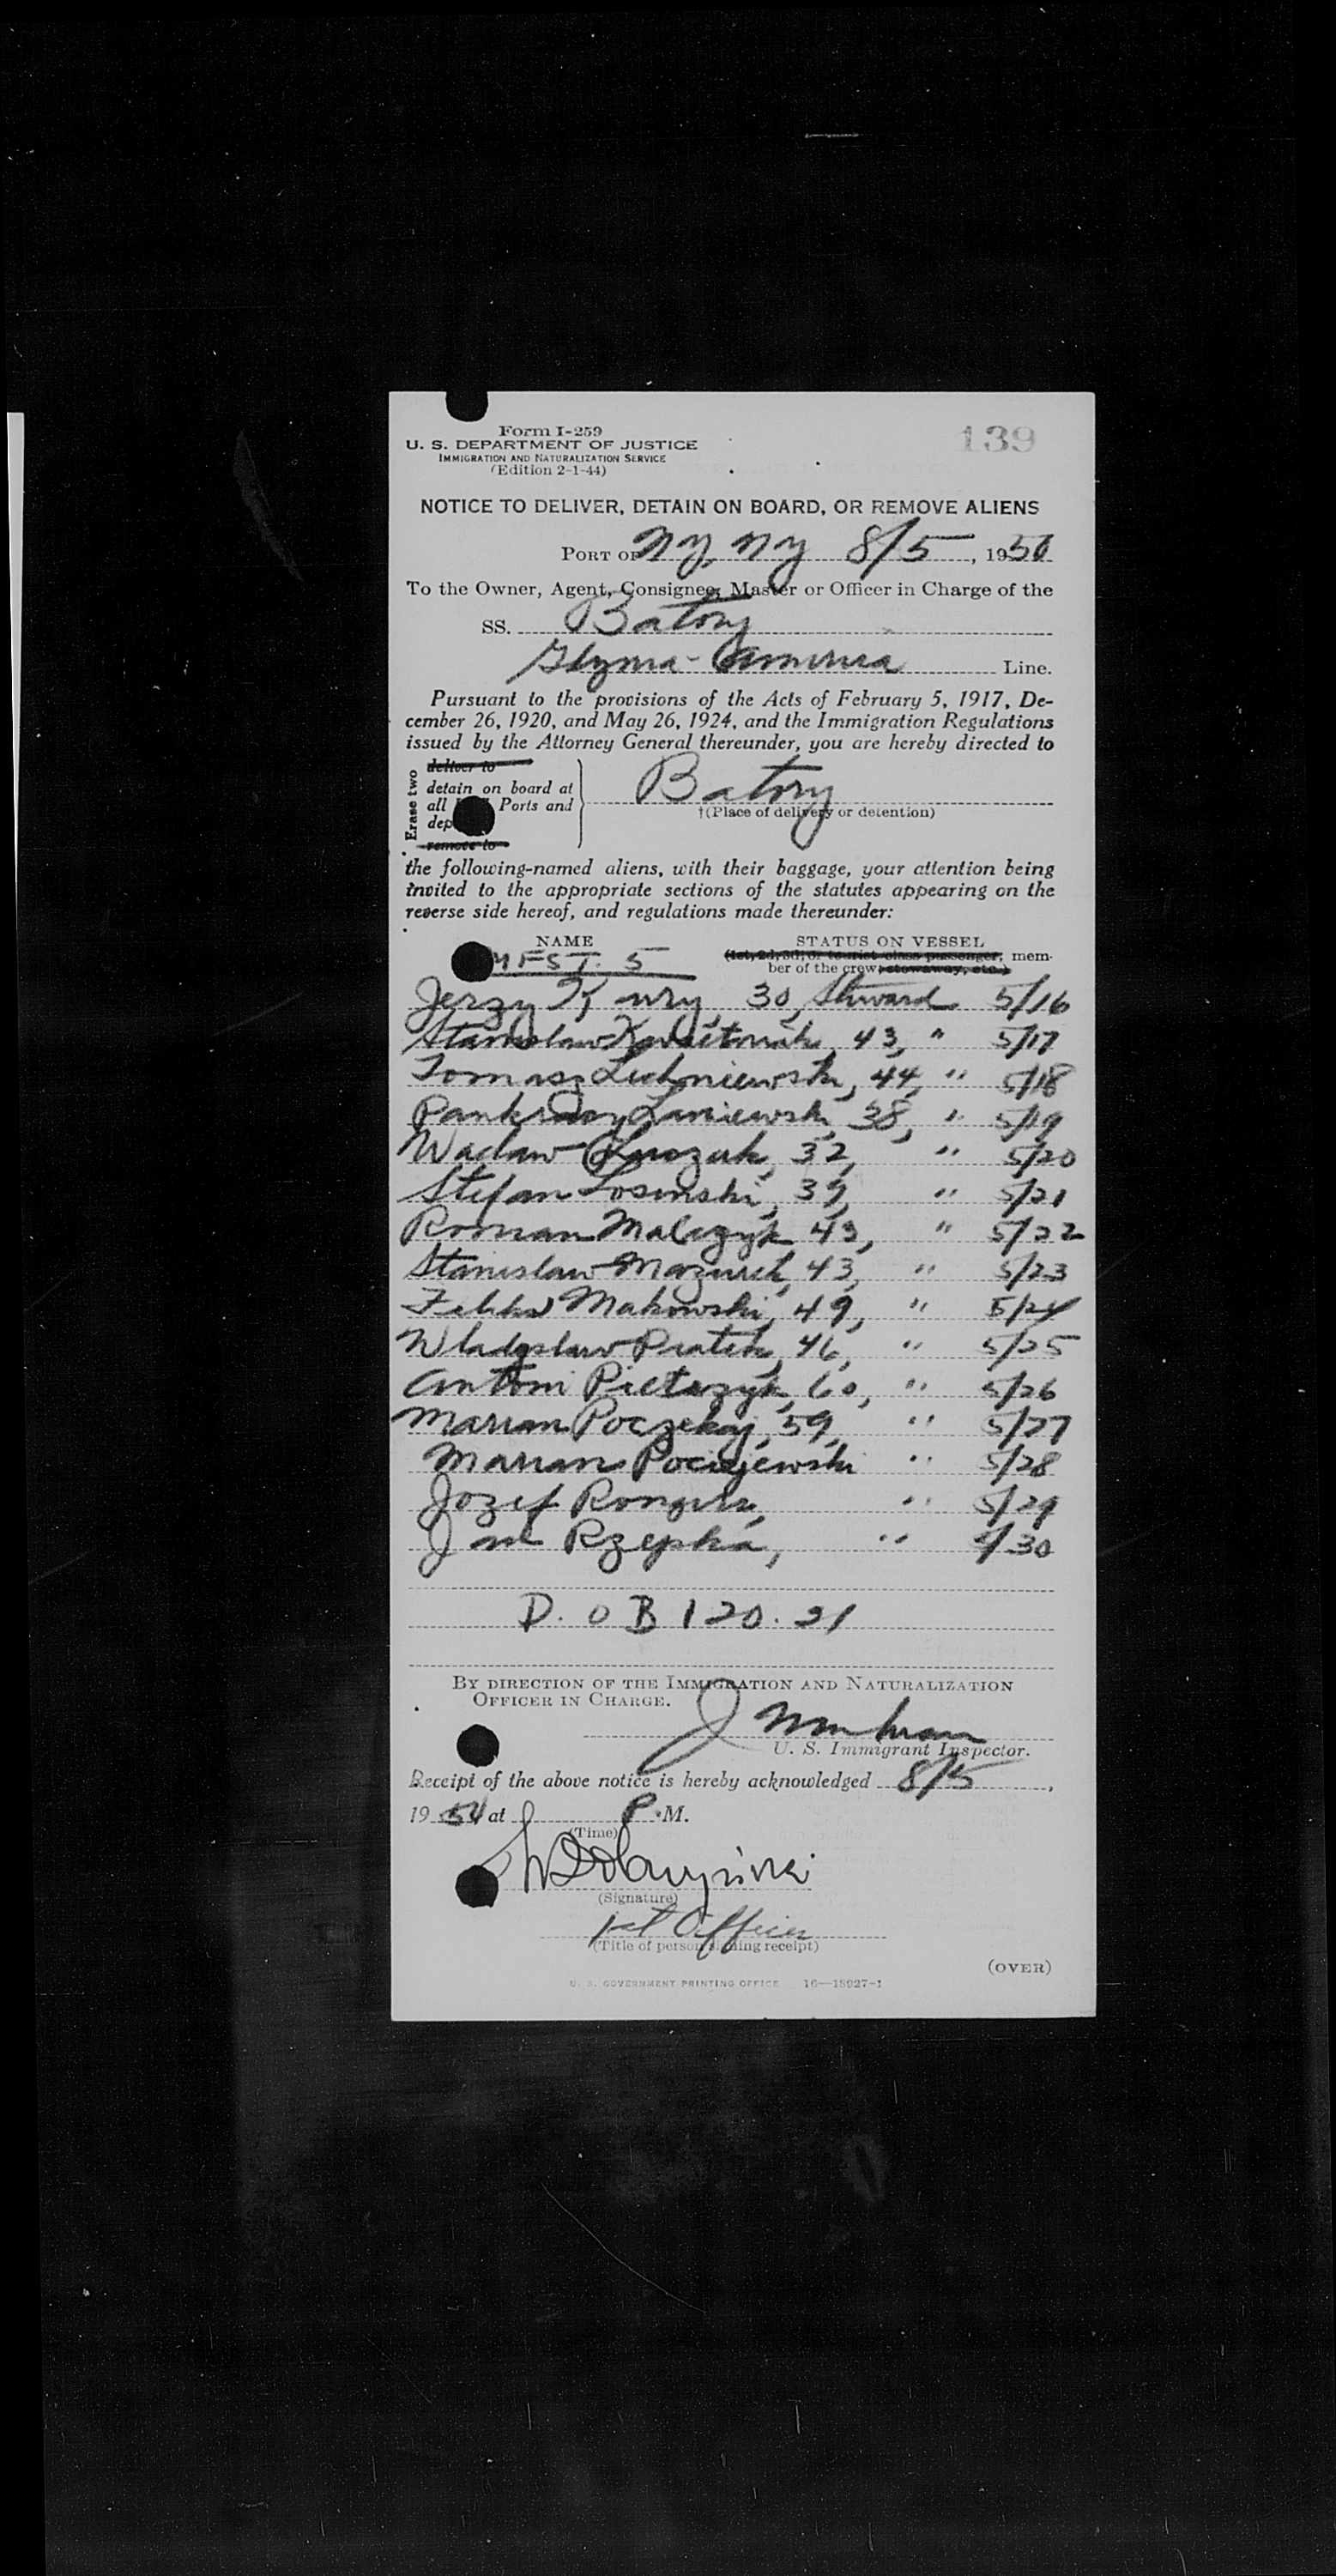 Form I-259
139
U. S. DEPARTMENT OF JUSTICE
IMMIGRATION AND NATURALIZATION SERVICE
(Edition 2-1-44)
NOTICE TO DELIVER, DETAIN ON BOARD, OR REMOVE ALIENS
PORT OF NY, NY 8/5, 1950
To the Owner, Agent, Consignee, Master or Officer in Charge of the
SS. Batory
America Line.
Pursuant to the provisions of the Acts of February 5, 1917, De-
cember 26, 1920, and May 26, 1924, and the Immigration Regulations
issued by the Attorney General thereunder, you are hereby directed to
Erase two
deliver to
detain on board at
all Ports and
remove to
Batory
†(Place of delivery or detention)
the following-named aliens, with their baggage, your attention being
invited to the appropriate sections of the statutes appearing on the
reverse side hereof, and regulations made thereunder:
NAME STATUS ON VESSEL
MFST. 5 (1st, 2d, 3d, or tourist class passenger, mem-
ber of the crew, stowaway, etc.)
Jerzy 30, Steward 5/16
Stanislaw 43, " 5/17
Tomasz Lichniewski, 44, " 5/18
Laniewski, 38, " 5/19
Waclaw 32, " 5/20
Stefan Losinski, 39, " 5/21
Roman Malczyk, 43, " 5/22
Stanislaw Mazurek, 43, " 5/23
Feliks Makowski, 49, " 5/24
Wladyslaw Piatek, 46, " 5/25
Antoni Pietrzyk, 60, " 5/26
Marian Poczekaj, 59, " 5/27
Marian Pociejewski " 5/28
Jozef " 5/29
Jan Rzepka, " 5/30
D. O B 120. 21
BY DIRECTION OF THE IMMIGRATION AND NATURALIZATION
OFFICER IN CHARGE.
J
U. S. Immigrant Inspector.
Receipt of the above notice is hereby acknowledged 8/5,
19 at P.M.
(Time)
(Signature)
1st Officer
(Title of person signing receipt)
(OVER)
U. S. GOVERNMENT PRINTING OFFICE 16—18927-1